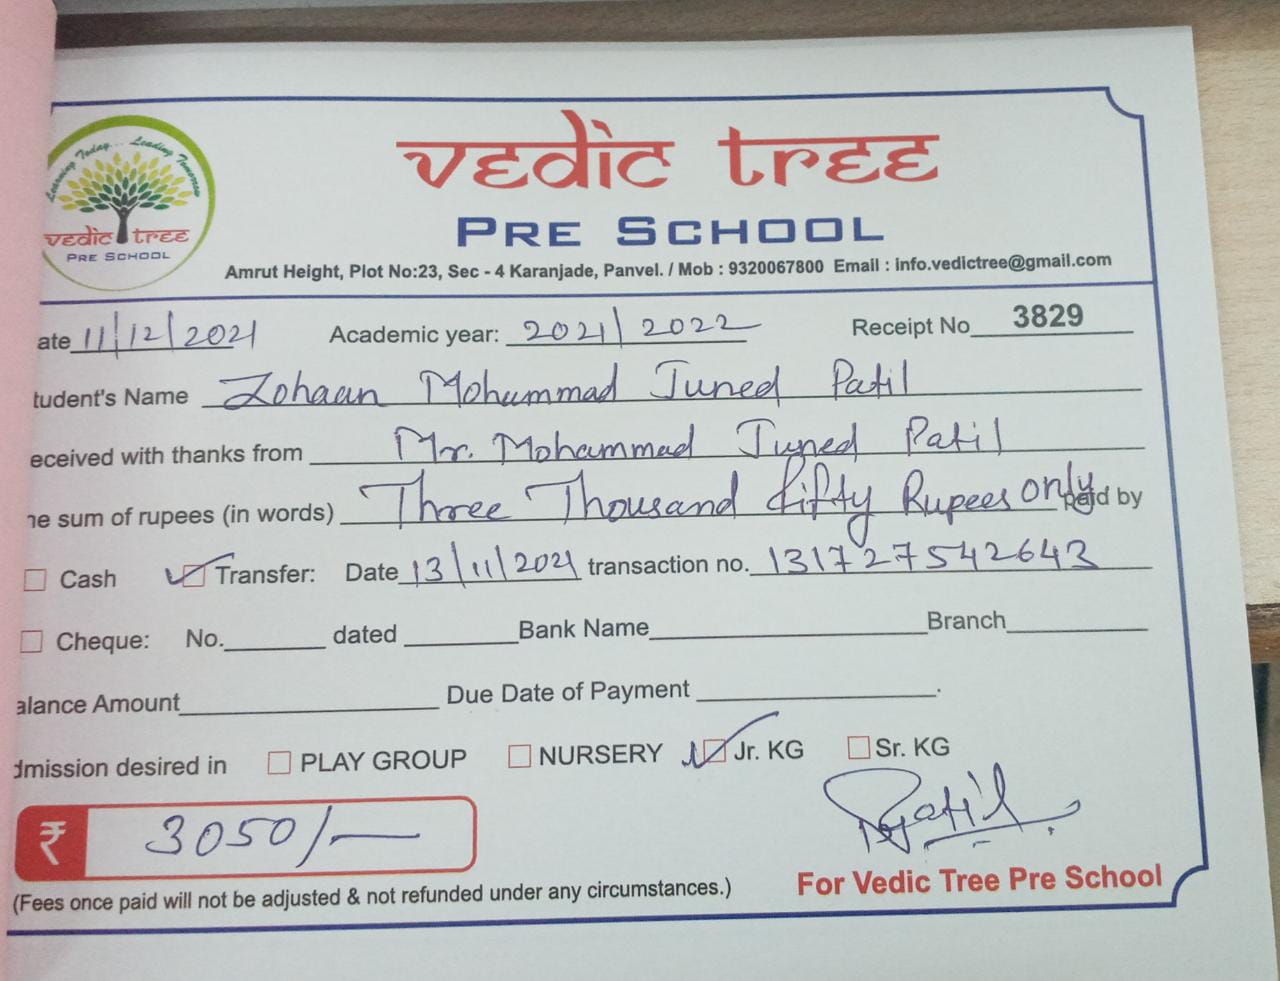 Learning Today... Leading Tomorrow
vedic tree
PRE SCHOOL
vedic tree
PRE SCHOOL
Amrut Height, Plot No:23, Sec - 4 Karanjade, Panvel. / Mob : 9320067800 Email : info.vedictree@gmail.com
ate 11/12/2021 Academic year: 2021/2022 Receipt No 3829
tudent's Name Zohaan Mohammad Juned Patil
eceived with thanks from Mr. Mohammad Juned Patil
he sum of rupees (in words) Three Thousand fifty Rupees only paid by
Cash Transfer: Date 13/11/2021 transaction no. 131727542643
Cheque: No. dated Bank Name Branch
alance Amount Due Date of Payment .
dmission desired in PLAY GROUP NURSERY Jr. KG Sr. KG
₹ 3050/-
Patil
(Fees once paid will not be adjusted & not refunded under any circumstances.)
For Vedic Tree Pre School